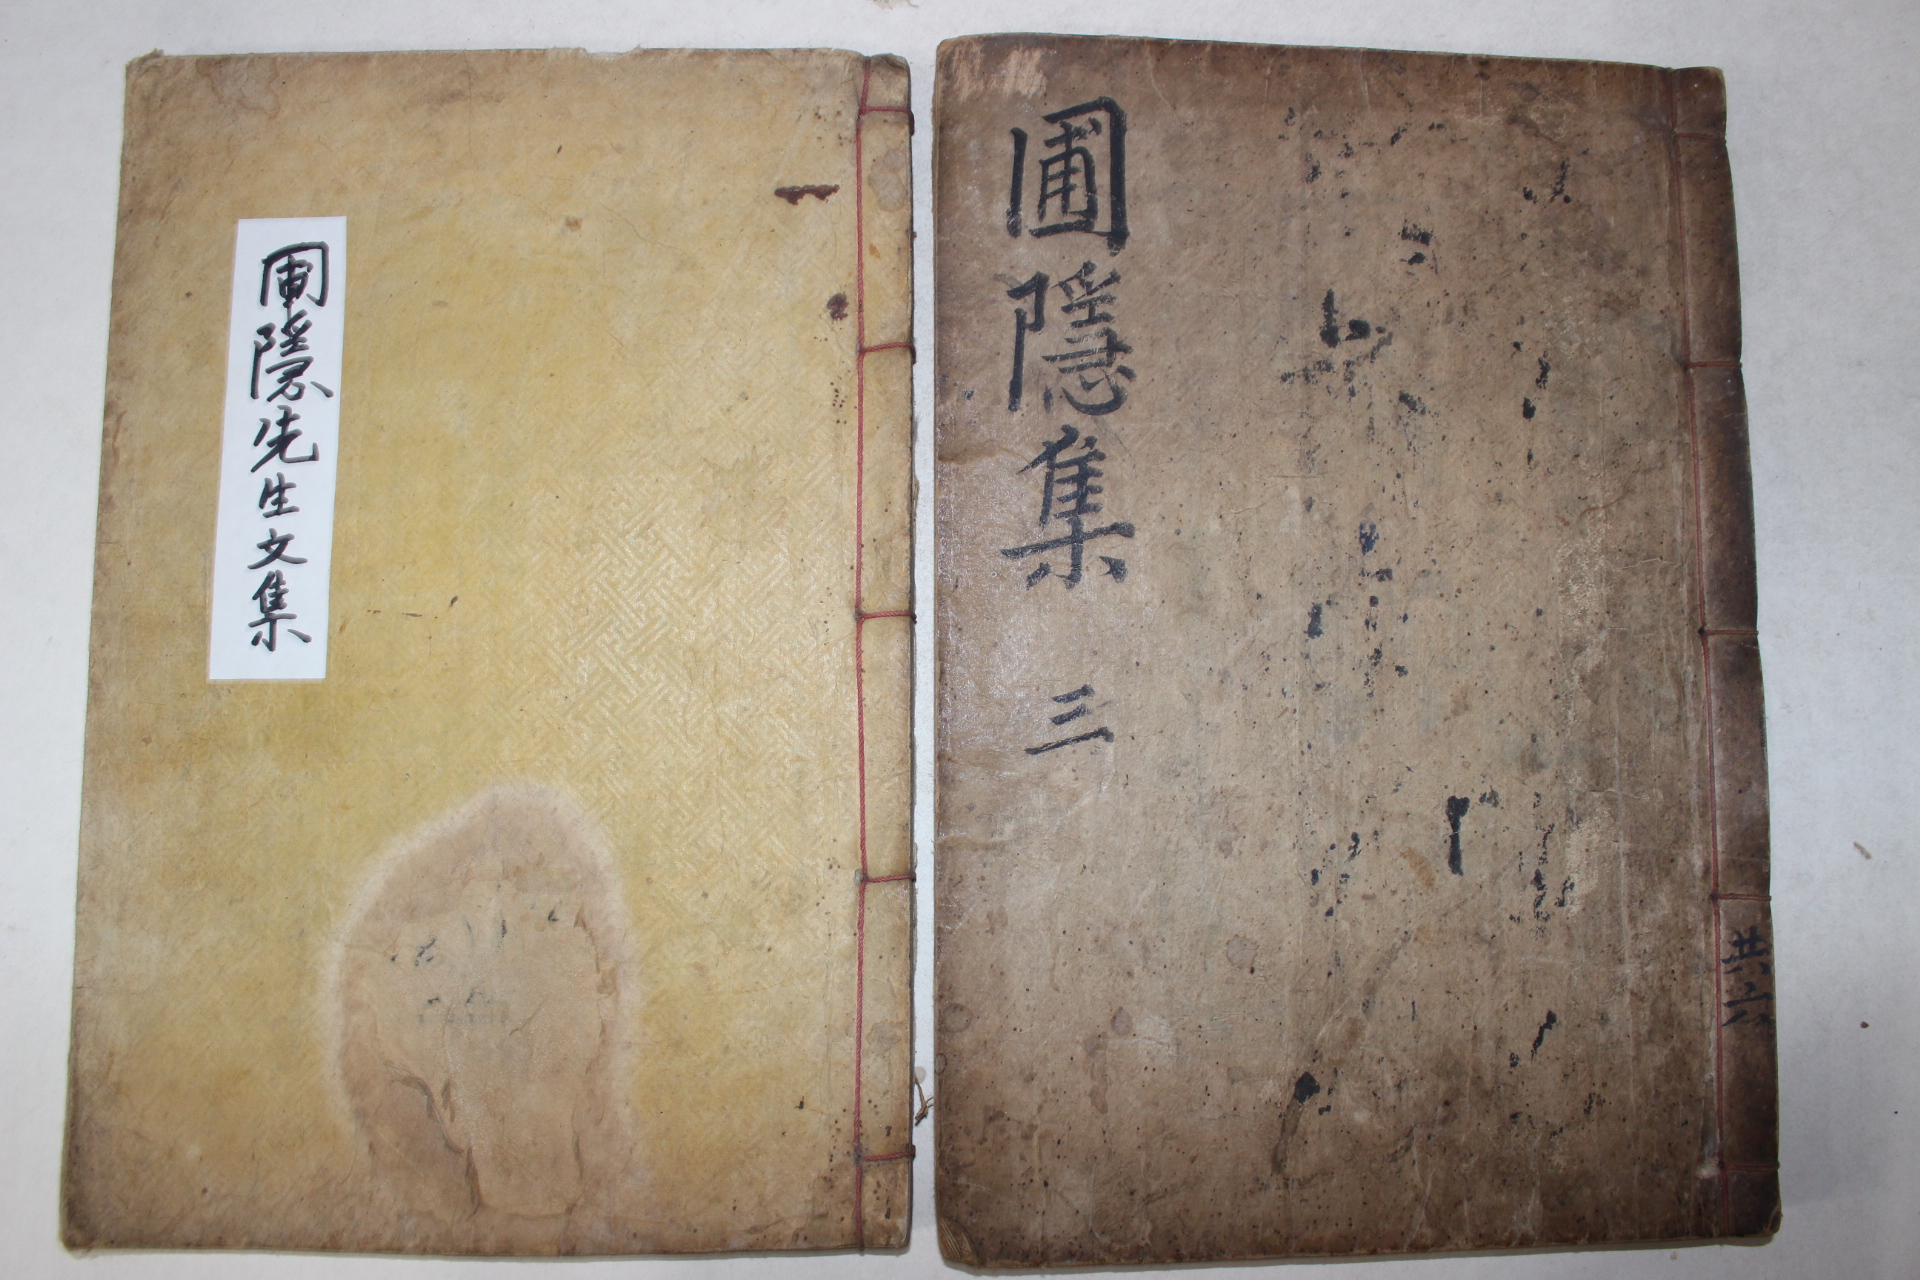 圃隱先生文集
圃隱集 三
共六